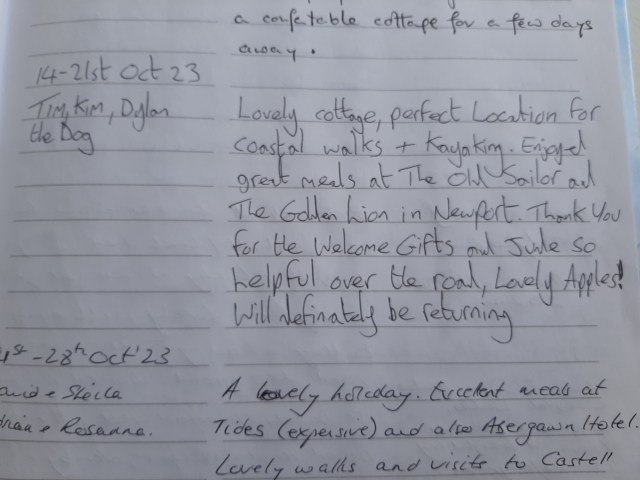 a comfetable cottage for a few days
away.
14-21st Oct 23
Tim, Kim, Dylan
the Dog
Lovely cottage, perfect Location for
coastal walks + Kayaking. Enjoyed
great meals at The Old Sailor and
The Golden Lion in Newport. Thank You
for the Welcome Gifts and June so
helpful over the road, Lovely Apples!
Will definately be returning
-28th Oct '23
& Sheila
& Rosanna.
A lovely holiday. Excellent meals at
Tides (expensive) and also Abergawn Hotel.
Lovely walks and visits to Castell